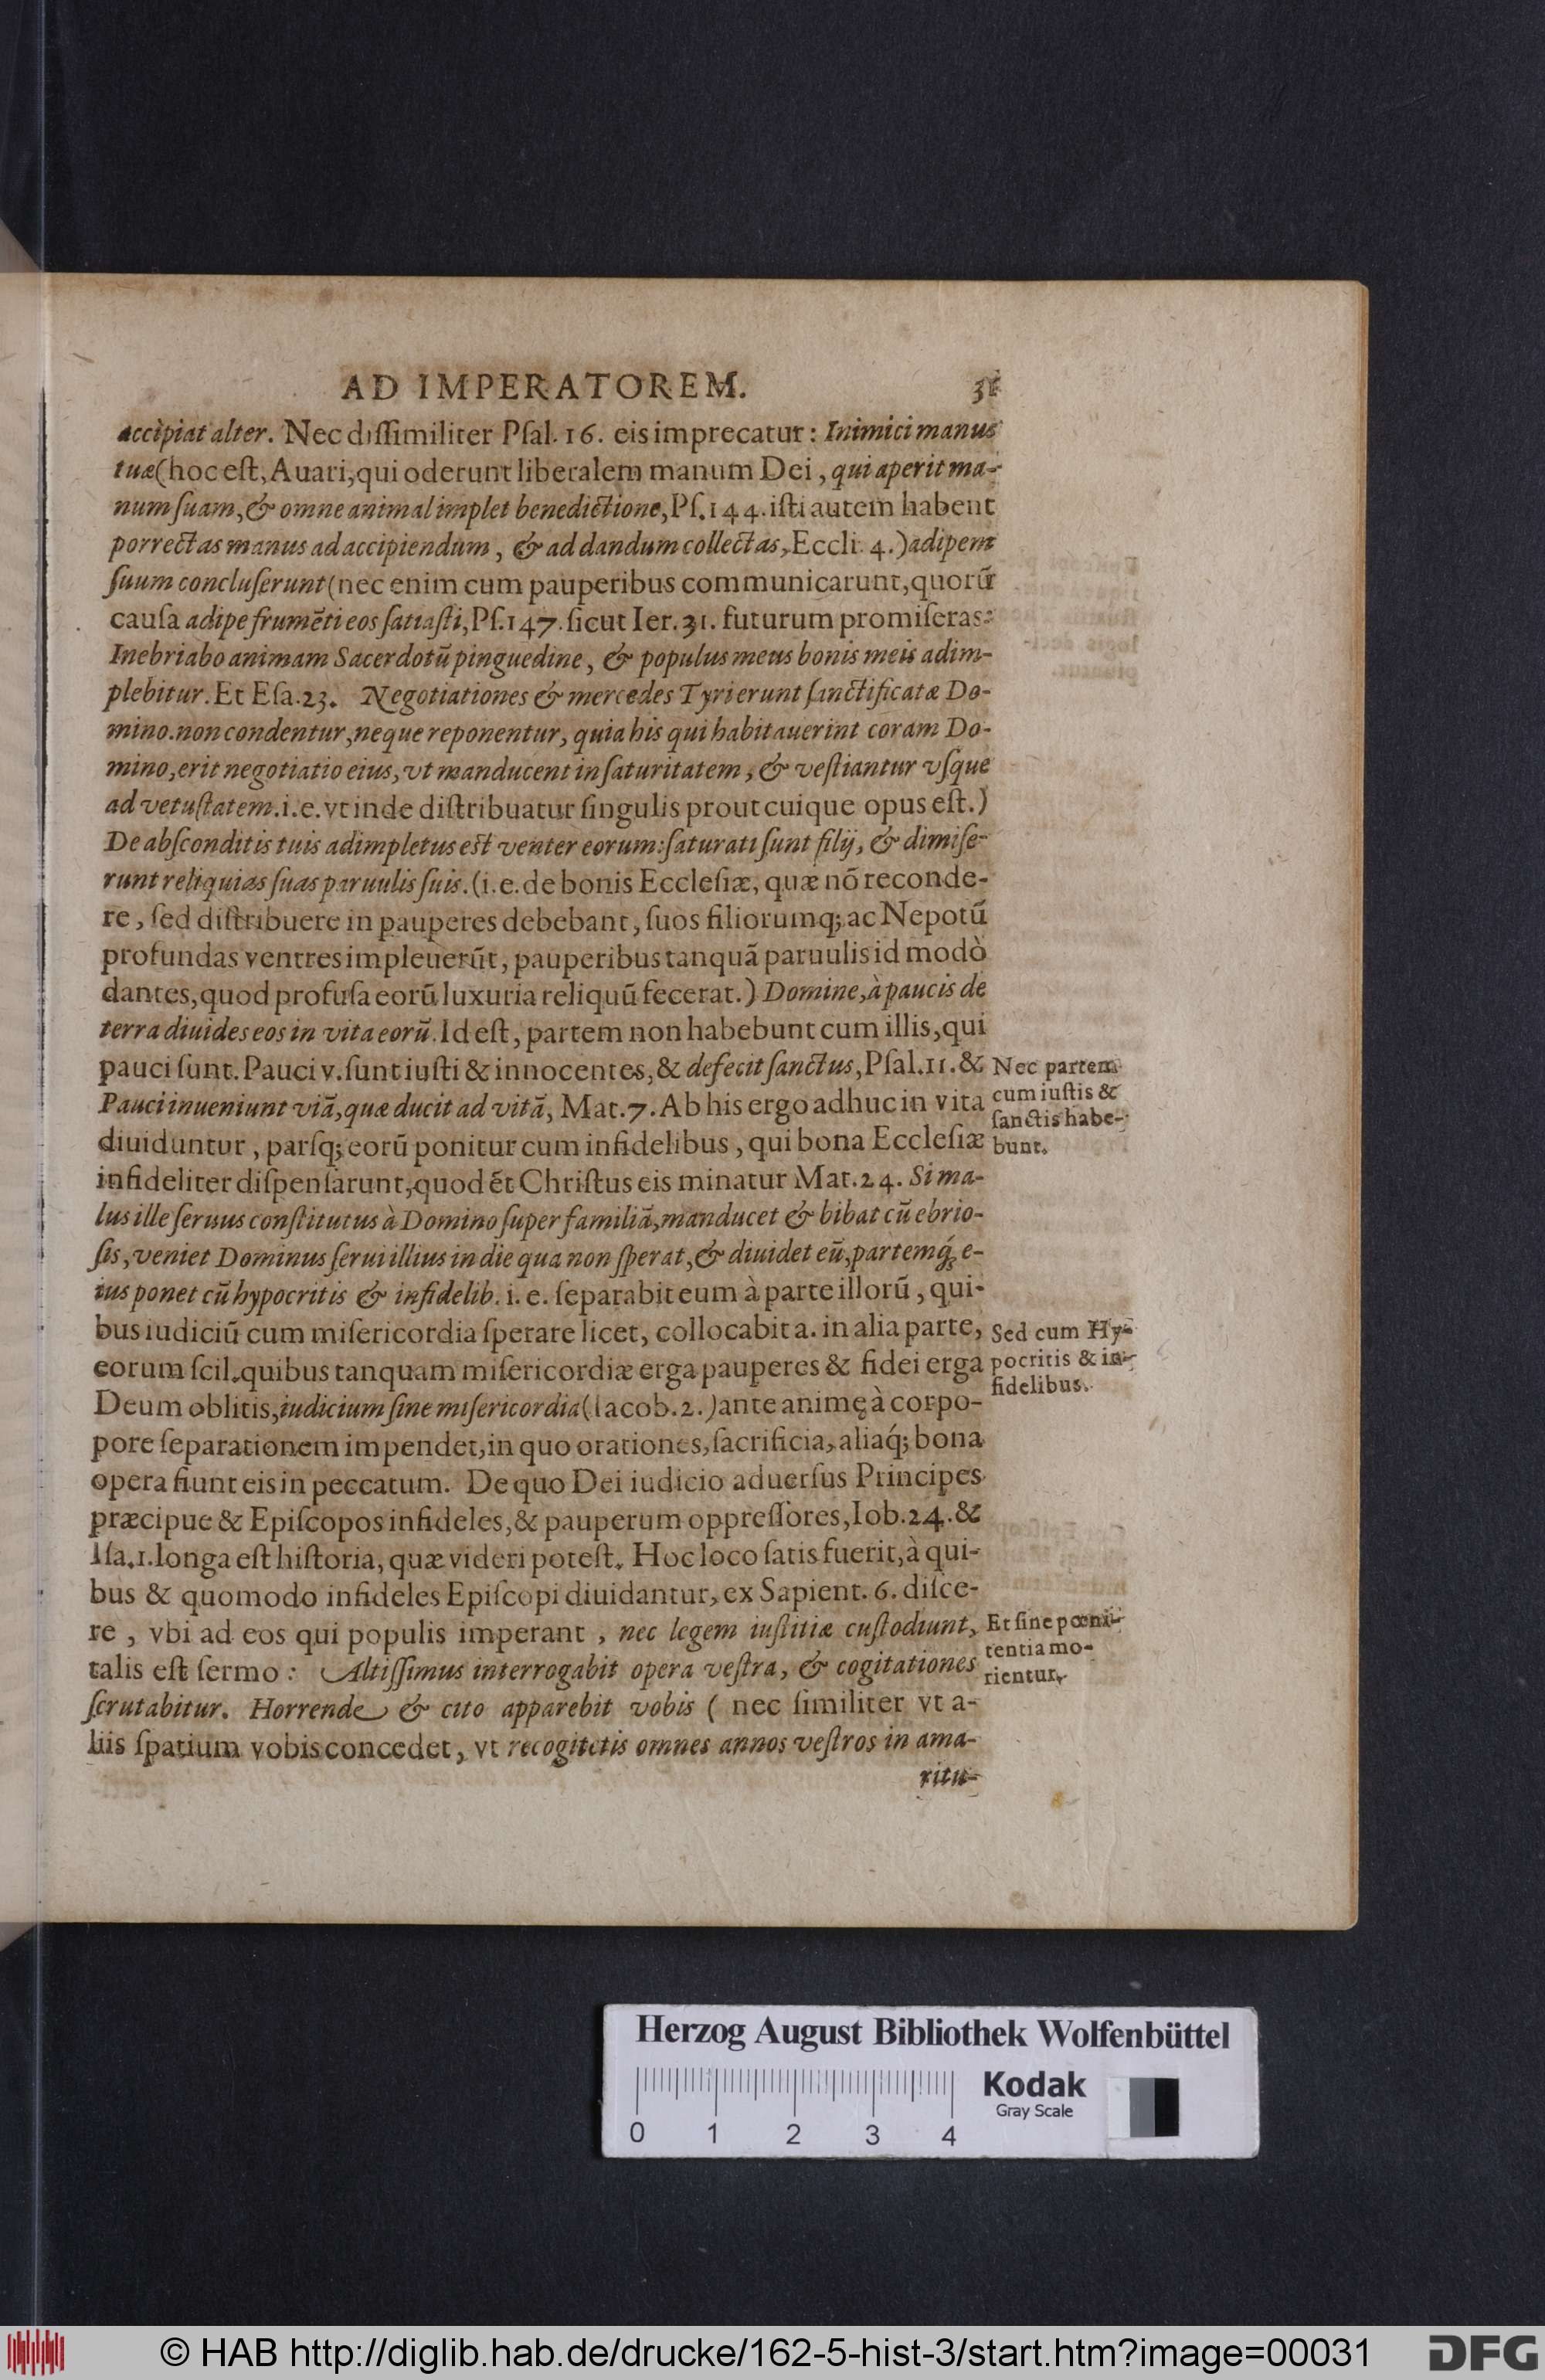 AD IMPERATOREM. 31
accipiat alter. Nec dissimiliter Psal. 16. eis imprecatur: Inimici manus
tuæ (hoc est, Auari, qui oderunt liberalem manum Dei, qui aperit ma-
num suam, & omne animal implet benedictione, Ps. 144. isti autem habent
porrectas manus ad accipiendum, & ad dandum collectas, Eccli. 4.) adipem
suum concluserunt (nec enim cum pauperibus communicarunt, quorũ
causa adipe frumẽti eos satiasti, Ps. 147. sicut Ier. 31. futurum promiseras:
Inebriabo animam Sacerdotũ pinguedine, & populus meus bonis meis adim-
plebitur. Et Esa. 23. Negotiationes & mercedes Tyri erunt sanctificatæ Do-
mino. non condentur, neque reponentur, quia his qui habitauerint coram Do-
mino, erit negotiatio eius, vt manducent in saturitatem, & vestiantur vsque
ad vetustatem. i. e. vt inde distribuatur singulis prout cuique opus est.)
De absconditis tuis adimpletus est venter eorum: saturati sunt filij, & dimise-
runt reliquias suas paruulis suis. (i. e. de bonis Ecclesiæ, quæ nõ reconde-
re, sed distribuere in pauperes debebant, suos filiorumq; ac Nepotũ
profundas ventres impleuerũt, pauperibus tanquã paruulis id modò
dantes, quod profusa eorũ luxuria reliquũ fecerat.) Domine, à paucis de
terra diuides eos in vita eorũ. Id est, partem non habebunt cum illis, qui
pauci sunt. Pauci v. sunt iusti & innocentes, & defecit sanctus, Psal. 11. &
Pauci inueniunt viã, quæ ducit ad vitã, Mat. 7. Ab his ergo adhuc in vita
diuiduntur, parsq; eorũ ponitur cum infidelibus, qui bona Ecclesiæ
infideliter dispensarunt, quod ét Christus eis minatur Mat. 24. Si ma-
lus ille seruus constitutus à Domino super familiã, manducet & bibat cũ ebrio-
sis, veniet Dominus serui illius in die qua non sperat, & diuidet eũ, partemq́; e-
ius ponet cũ hypocritis & infidelib. i. e. separabit eum à parte illorũ, qui-
bus iudiciũ cum misericordia sperare licet, collocabit a. in alia parte,
eorum scil. quibus tanquam misericordiæ erga pauperes & fidei erga
Deum oblitis, iudicium sine misericordia (Iacob. 2.) ante animę à corpo-
pore separationem impendet, in quo orationes, sacrificia, aliaq́; bona
opera fiunt eis in peccatum. De quo Dei iudicio aduersus Principes
præcipue & Episcopos infideles, & pauperum oppressores, Iob. 24. &
Isa. 1. longa est historia, quæ videri potest. Hoc loco satis fuerit, à qui-
bus & quomodo infideles Episcopi diuidantur, ex Sapient. 6. disce-
re, vbi ad eos qui populis imperant, nec legem iustitiæ custodiunt,
talis est sermo: Altissimus interrogabit opera vestra, & cogitationes
scrutabitur. Horrende & cito apparebit vobis ( nec similiter vt a-
liis spatium vobis concedet, vt recogitetis omnes annos vestros in ama-
ritu-
Nec partem
cum iustis &
sanctis habe-
bunt.
Sed cum Hy-
pocritis & in-
fidelibus.
Et sine pœni-
tentia mo-
rientur.
Herzog August Bibliothek Wolfenbüttel
Kodak
Gray Scale
0 1 2 3 4
© HAB http://diglib.hab.de/drucke/162-5-hist-3/start.htm?image=00031
DFG